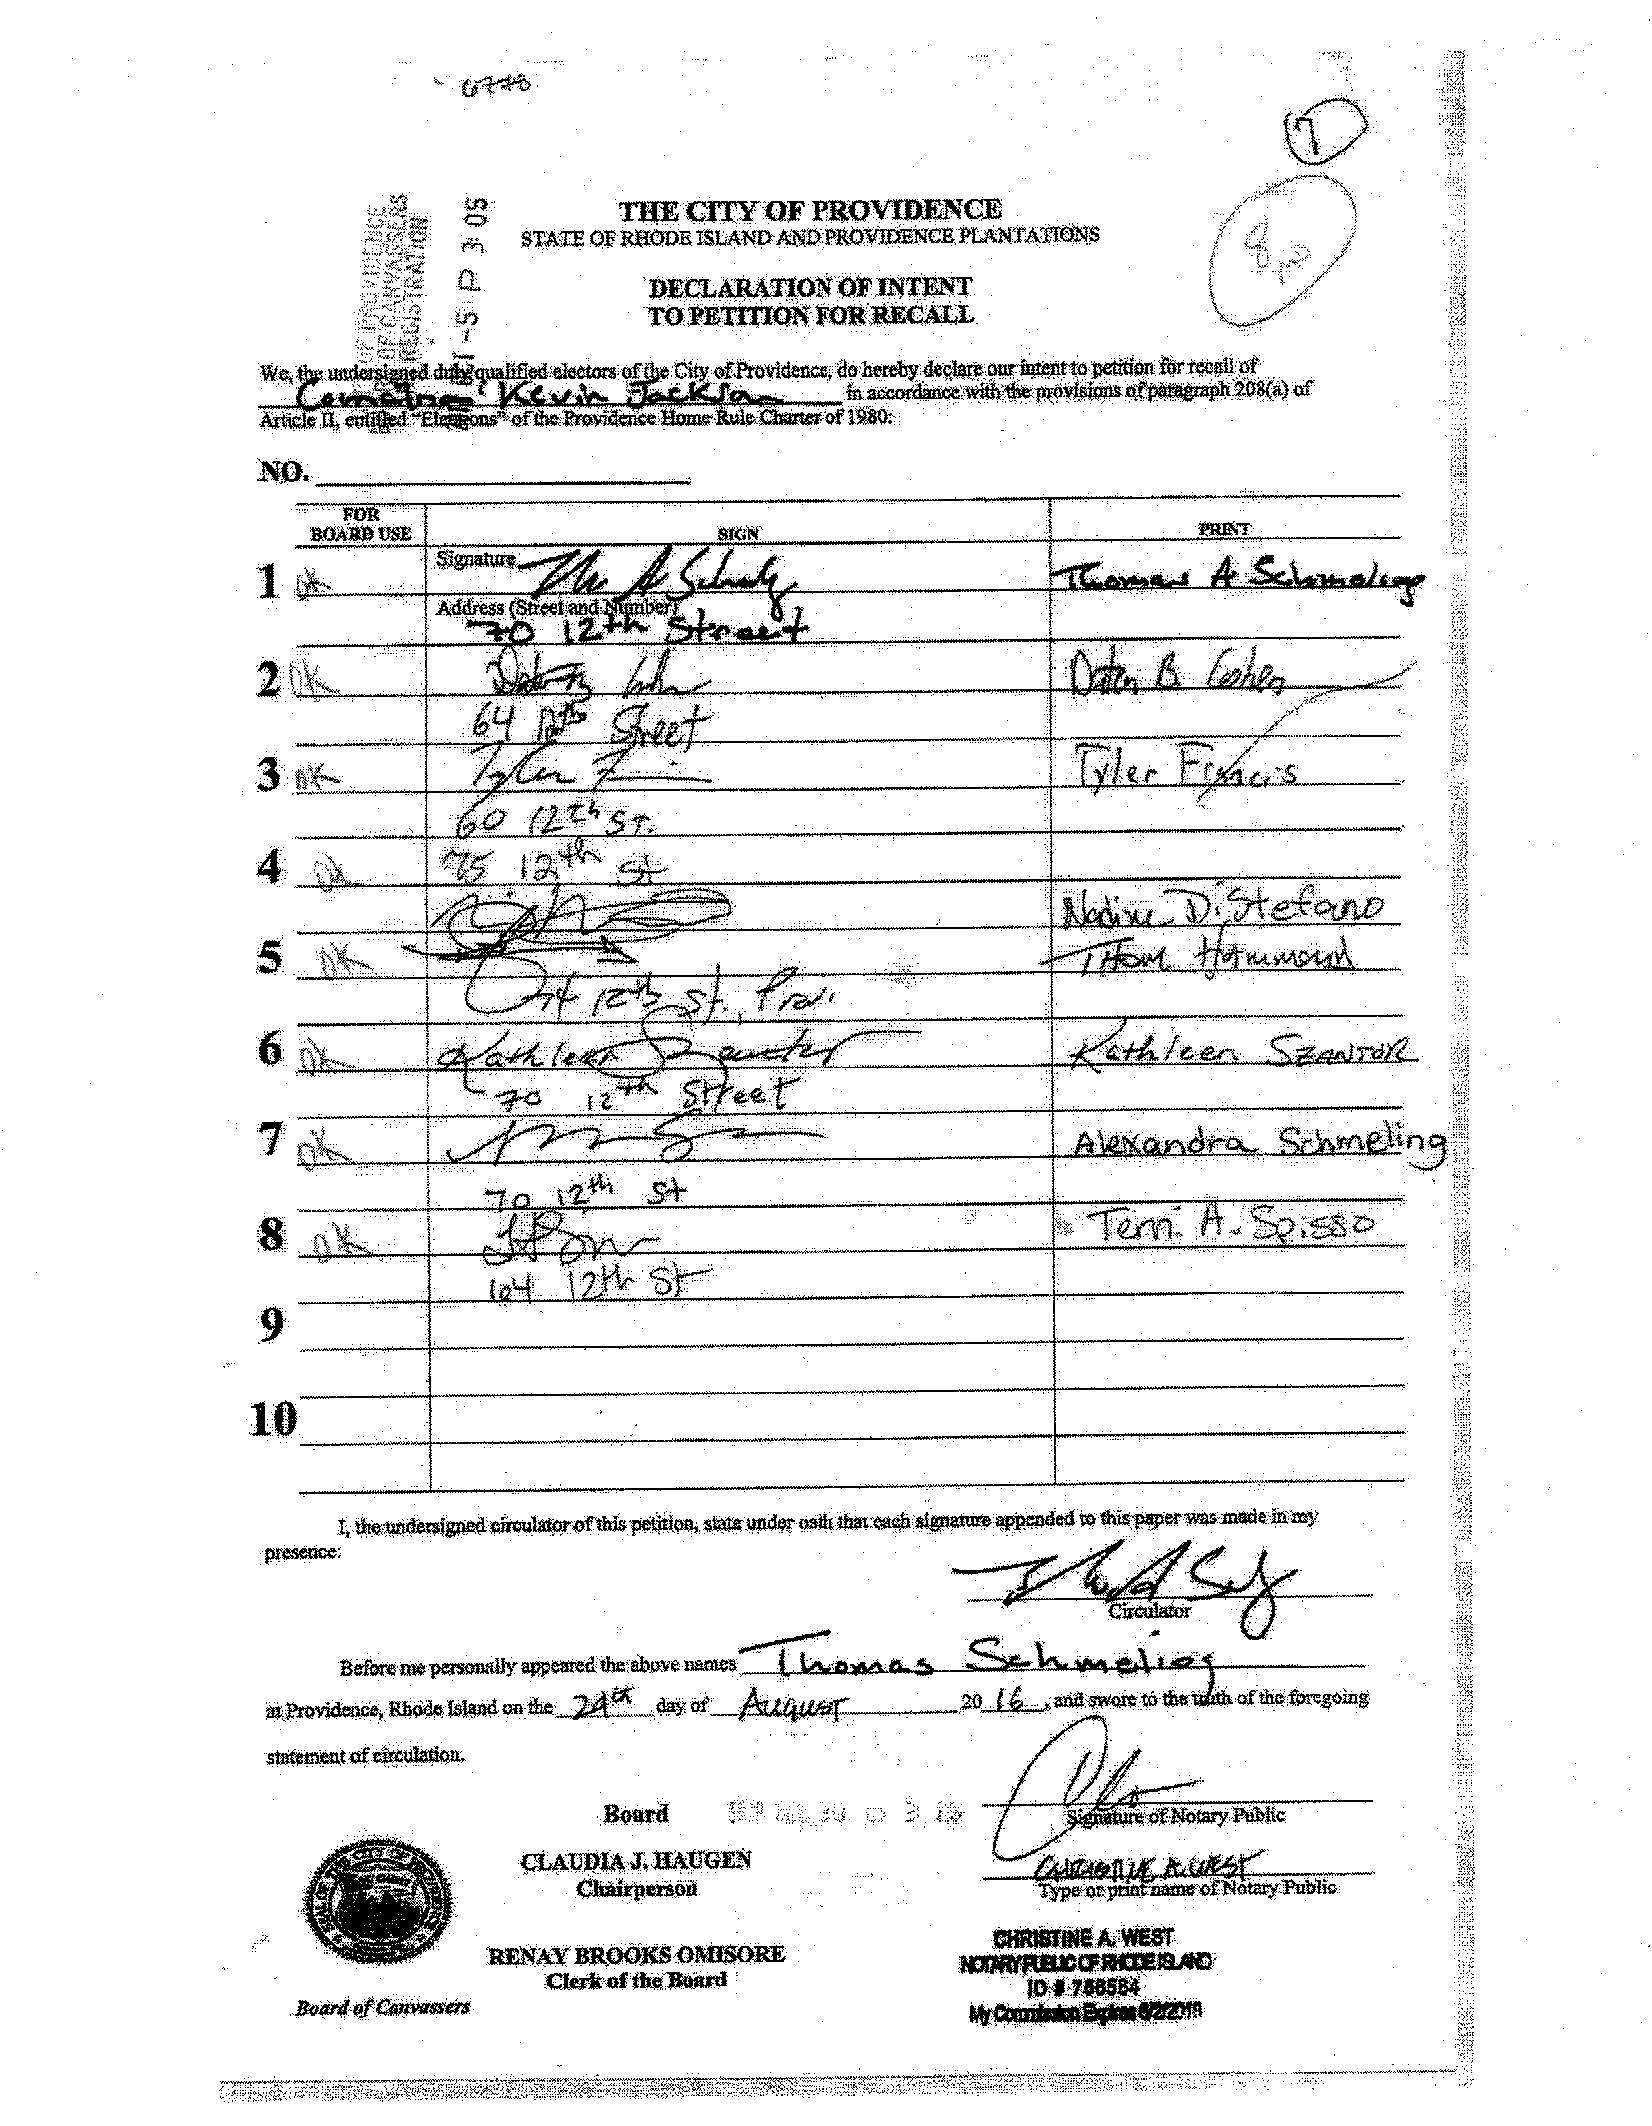 0778
7
8
THE CITY OF PROVIDENCE
STATE OF RHODE ISLAND AND PROVIDENCE PLANTATIONS
DECLARATION OF INTENT
TO PETITION FOR RECALL
-5 P 3 05
We, the undersigned duly qualified electors of the City of Providence, do hereby declare our intent to petition for recall of
Kevin Jackson in accordance with the provisions of paragraph 208(a) of
Article II, entitled "Elections" of the Providence Home Rule Charter of 1980:
NO.
FOR
BOARD USE SIGN PRINT
1 OK Signature Thomas A Schmeling
Address (Street and Number)
70 12th Street
2 OK B Cohen
64 12th Street
3 OK Tyler Francis
60 12th St.
4 OK 75 12th St
Nadine DiStefano
5 OK Thom Hammond
74 12th St., Prov.
6 OK Kathleen Szantor Kathleen SZANTOR
70 12th Street
7 OK Alexandra Schmeling
70 12th St
8 OK Terri A. Spisso
104 12th St
9
10
I, the undersigned circulator of this petition, state under oath that each signature appended to this paper was made in my
presence:
Circulator
Before me personally appeared the above names Thomas Schmeling
at Providence, Rhode Island on the 29th day of August 2016, and swore to the truth of the foregoing
statement of circulation.
Board
Signature of Notary Public
CLAUDIA J. HAUGEN
Chairperson
CHRISTINE A. WEST
Type or print name of Notary Public
RENAY BROOKS OMISORE
Clerk of the Board
Board of Canvassers
CHRISTINE A. WEST
NOTARY PUBLIC OF RHODE ISLAND
ID # 756584
My Commission Expires